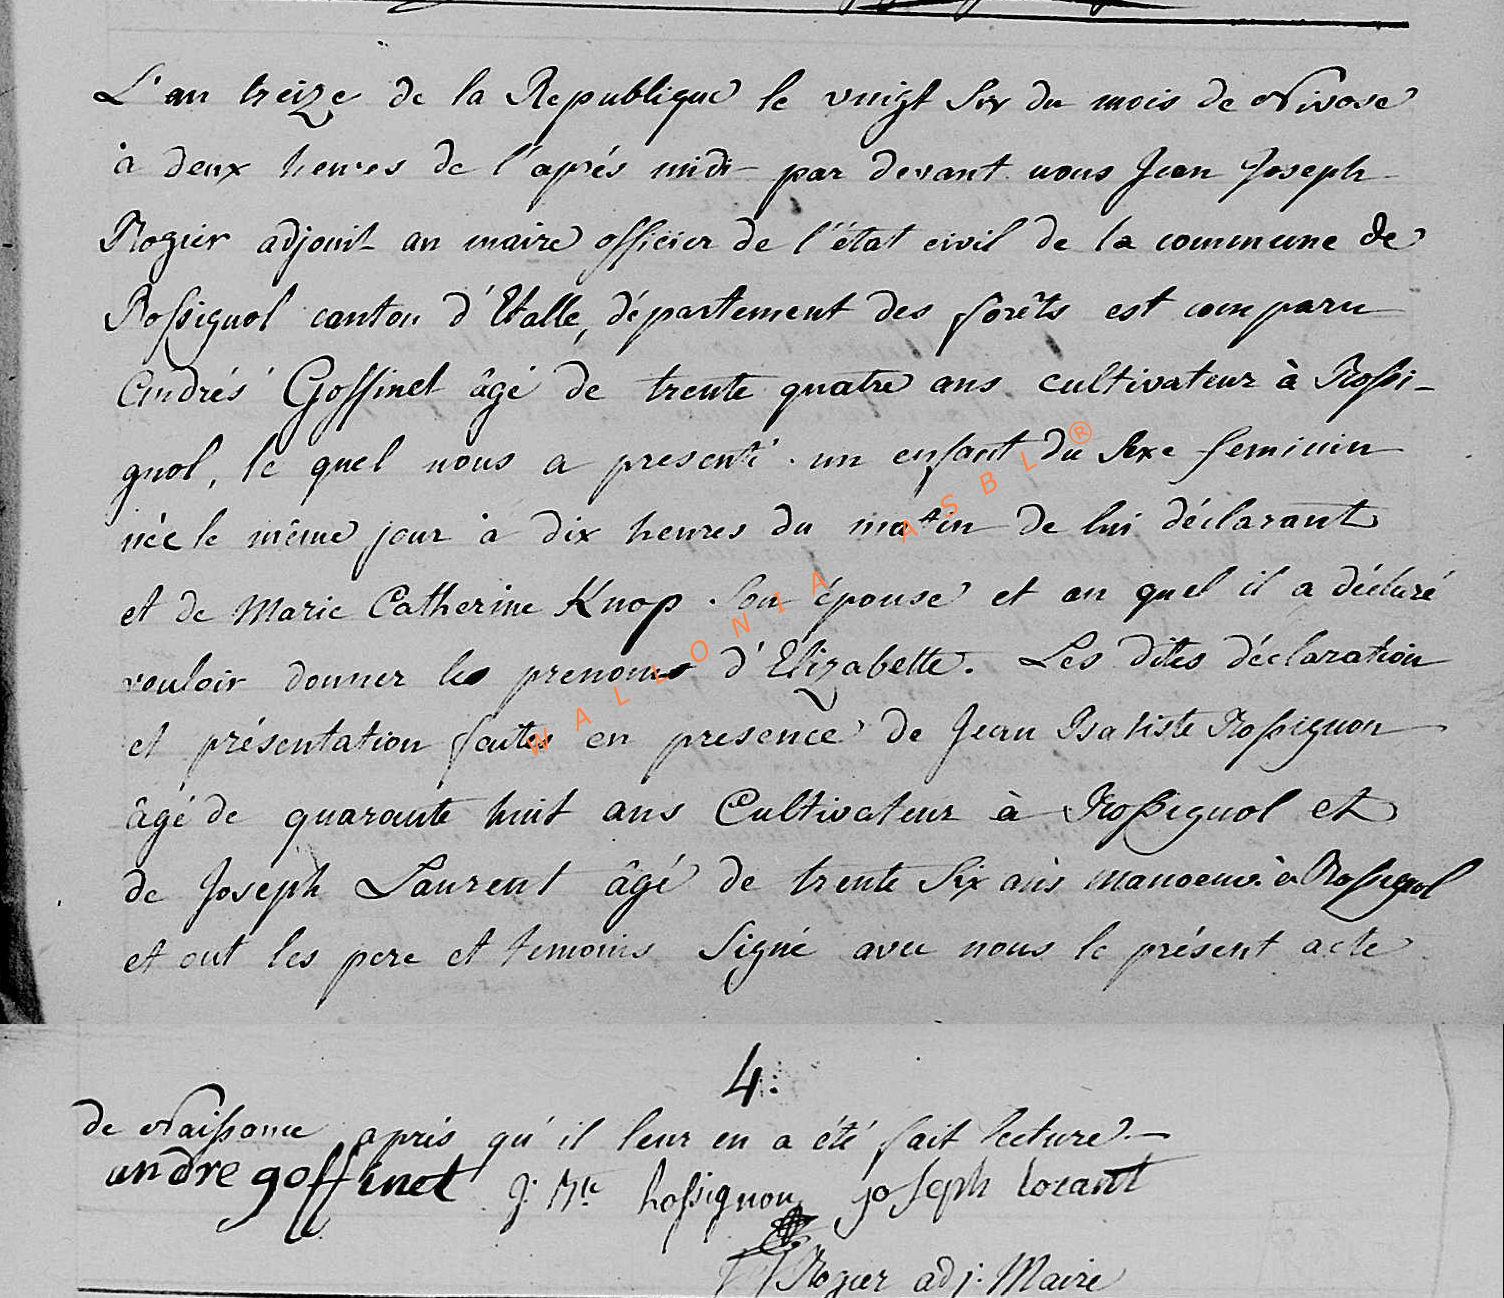 L'an treize de la Republique le vingt Six du mois de Nivose
à deux heures de l'aprés midi par devant nous Jean Joseph
Rogier adjoint au maire officier de l'état civil de la commune de
Rossignol canton d'Etalle, département des forêts est comparu
Andrés Goffinet âgé de trente quatre ans cultivateur à Rossi-
gnol, le quel nous a presenté un enfant du Sexe feminin
née le même jour à dix heures du matin de lui déclarant
et de Marie Catherine Knop Son épouse et au quel il a déclaré
vouloir donner les prenoms d'Elizabette. Les dites déclaration
et présentation faites en presence de Jean Batiste Rossignon
âgé de quarante huit ans Cultivateur à Rossignol et
de Joseph Laurent âgé de trente Six ans manoeuv. à Rossignol
et ont les pere et temoins Signé avec nous le présent acte
4.
de Naissance aprés qu'il leur en a été fait lecture.
andre goffinet J. Bte rossignon joseph lorant
Rogier adj. Maire
WALLONIA ASBL®